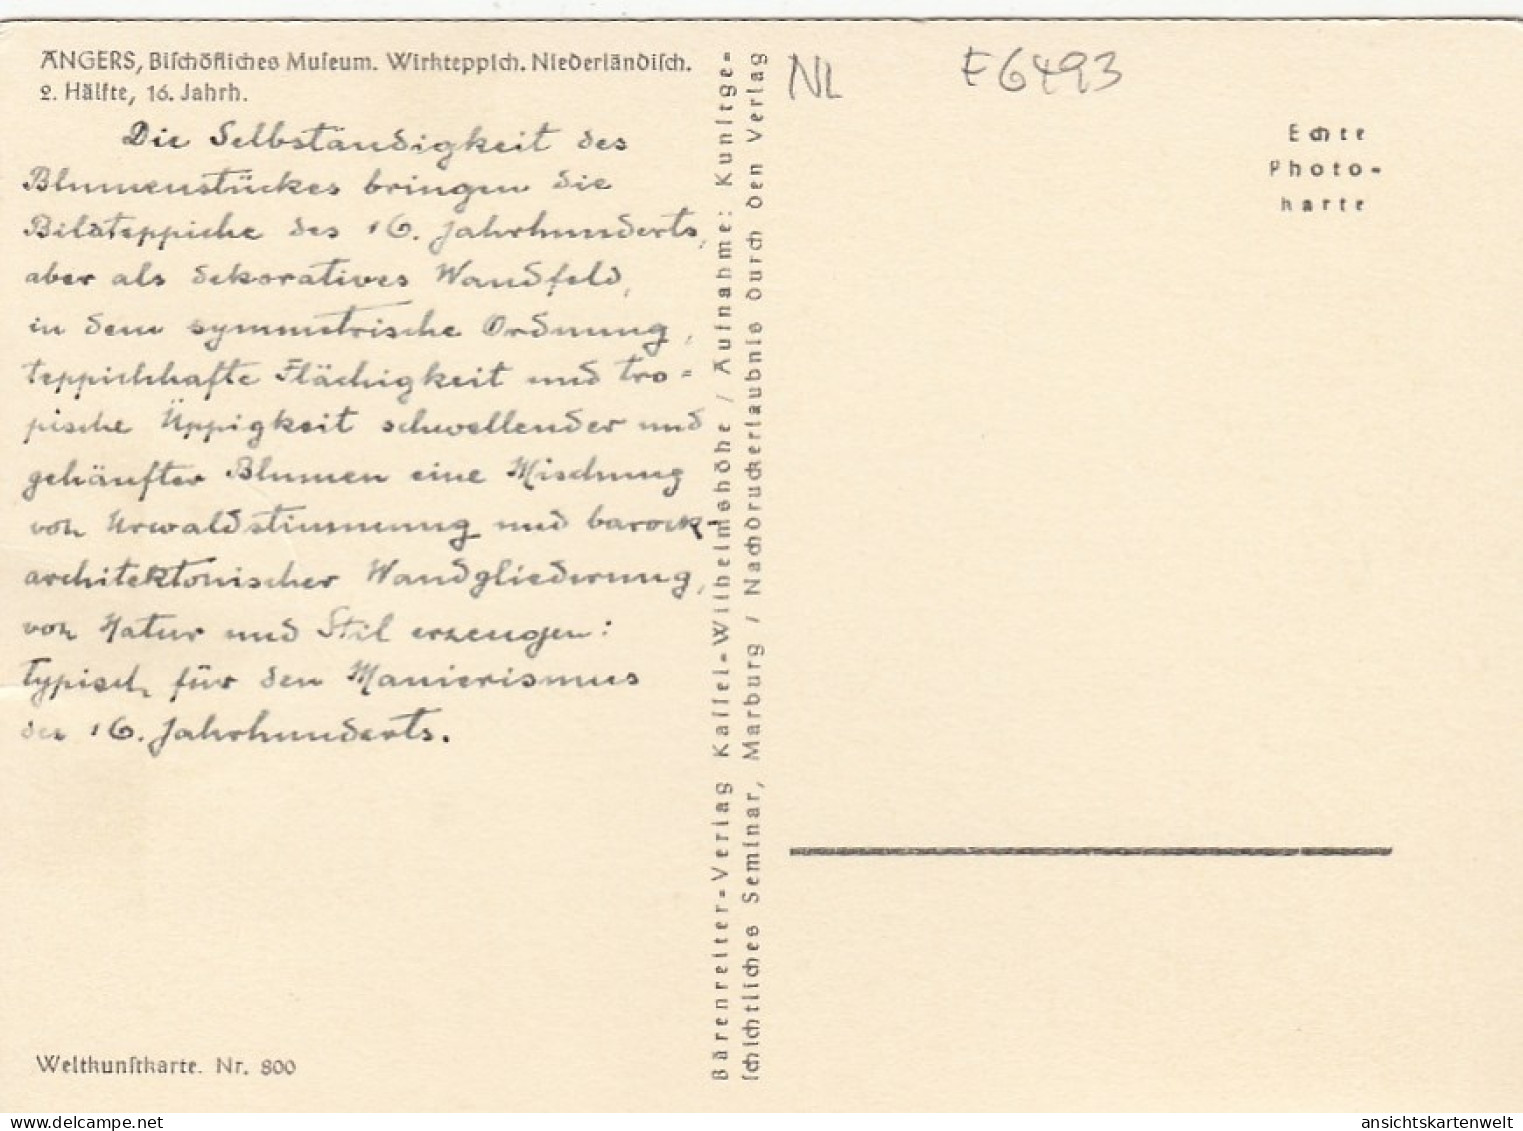 ANGERS, Biſchöfliches Muſeum. Wirkteppich. Niederländiſch.
2. Hälfte, 16. Jahrh.
Die Selbständigkeit des
Blumenstückes bringen die
Bildteppiche des 16. Jahrhunderts,
aber als dekoratives Wandfeld,
in dem symmetrische Ordnung,
teppichhafte Flächigkeit und tro=
pische Üppigkeit schwellender und
gehäufter Blumen eine Mischung
von Urwaldstimmung und barock-
architektonischer Wandgliederung,
von Natur und Stil erzeugen:
typisch für den Manierismus
des 16. Jahrhunderts.
Weltkunſtkarte. Nr. 800
Bärenreiter=Verlag Kaſſel=Wilhelmshöhe / Aufnahme: Kunſtge=
ſchichtliches Seminar, Marburg / Nachdruckerlaubnis durch den Verlag
NL
E6493
Echte
Photo=
karte
ansichtskartenwelt